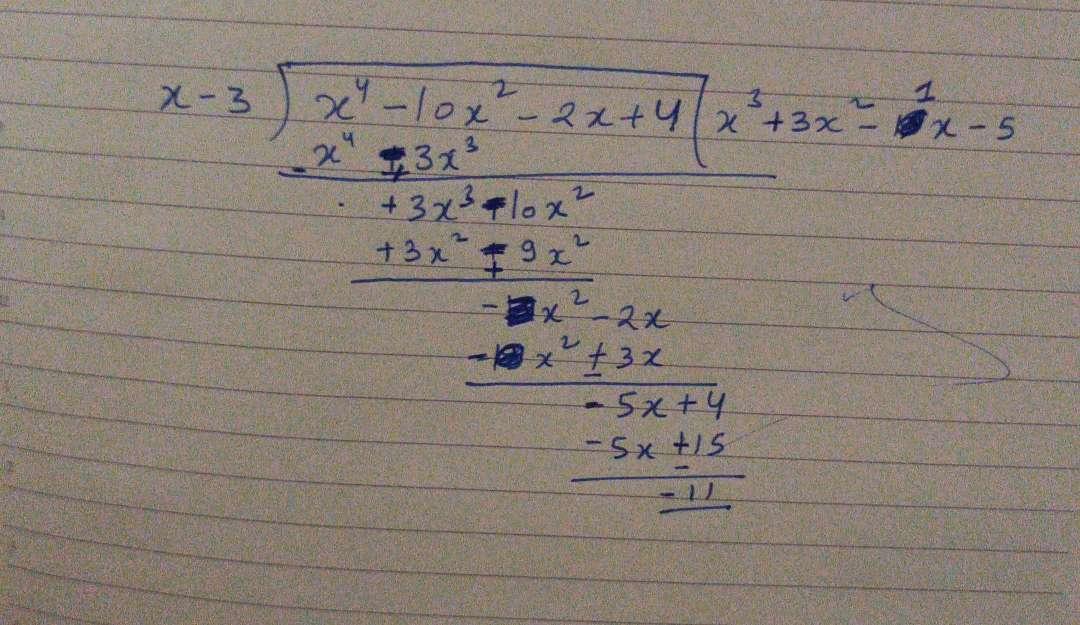 x - 3 ) x⁴ - 10x² - 2x + 4 ( x³ + 3x² - 1x - 5
- x⁴ ∓ 3x³
+ 3x³ - 10x²
+ 3x² ∓ 9x²
- x² - 2x
- x² ± 3x
- 5x + 4
- 5x ± 15
- 11